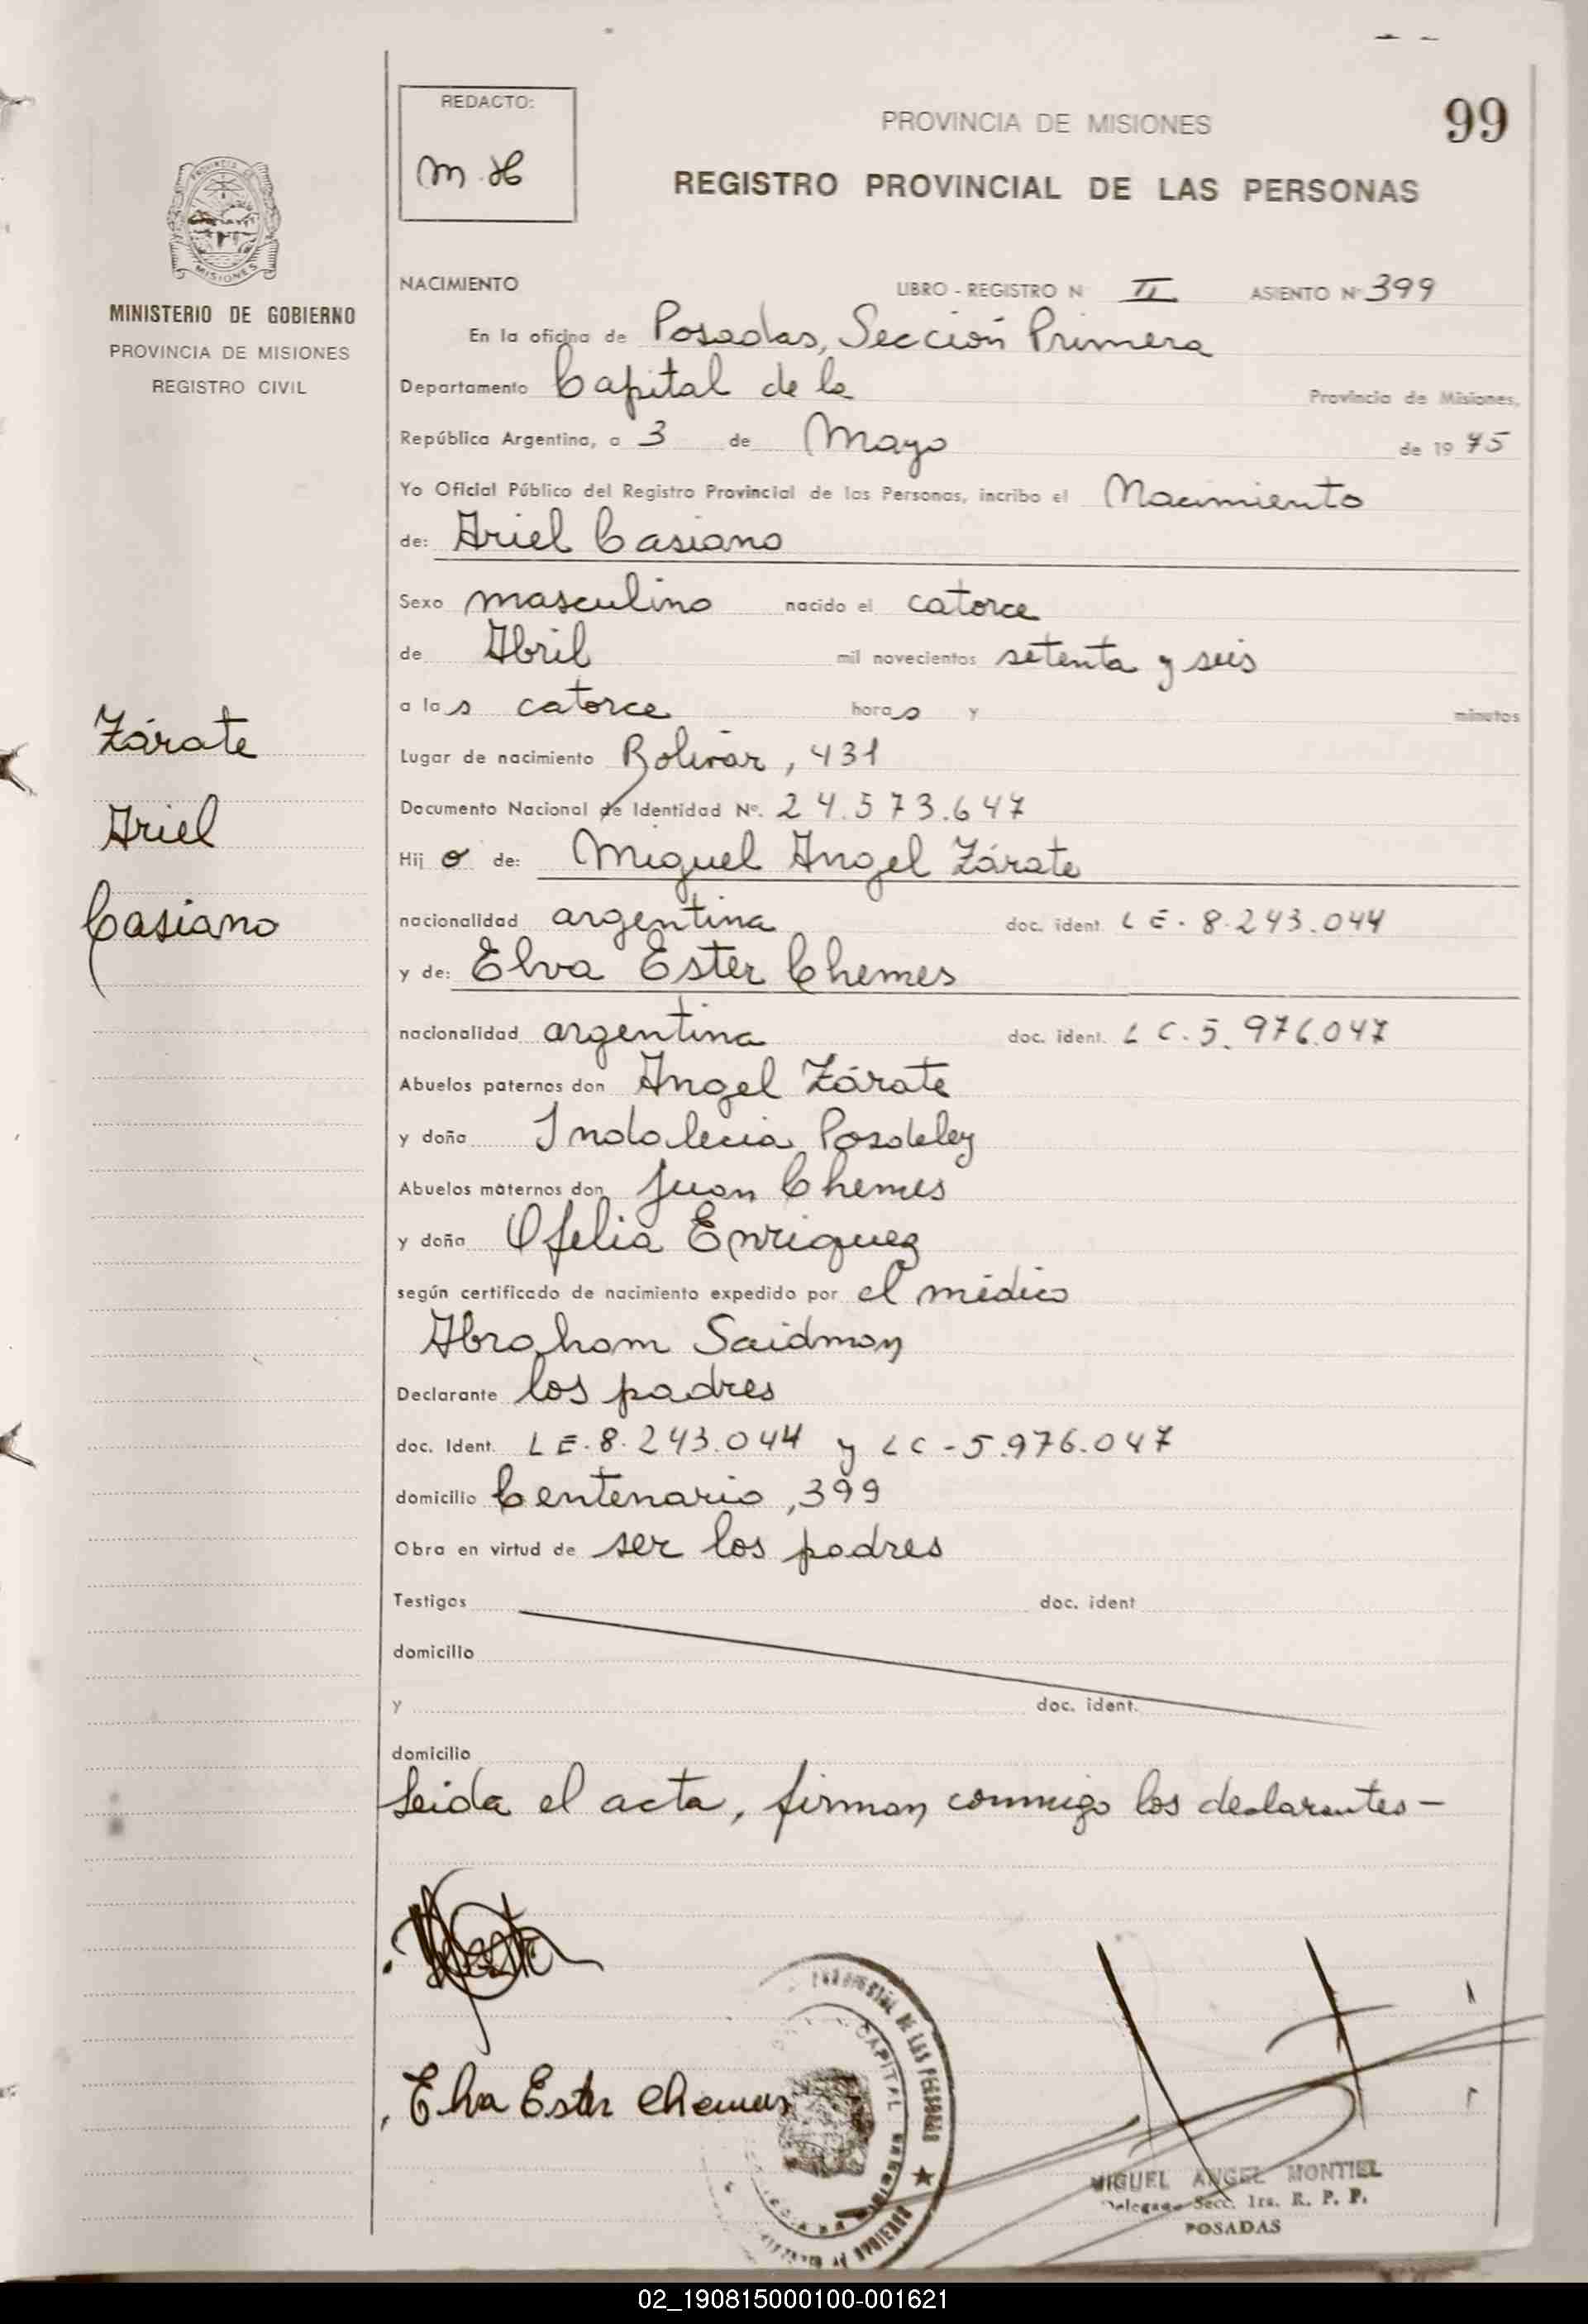 REDACTO:
M. H
PROVINCIA DE MISIONES
99
REGISTRO PROVINCIAL DE LAS PERSONAS
MISIONES
MINISTERIO DE GOBIERNO
PROVINCIA DE MISIONES
REGISTRO CIVIL
Zárate
Ariel
Casiano
NACIMIENTO LIBRO - REGISTRO N II ASIENTO Nº 399
En la oficina de Posadas, Sección Primera
Departamento Capital de la Provincia de Misiones,
República Argentina, a 3 de Mayo de 1975
Yo Oficial Público del Registro Provincial de las Personas, incribo el Nacimiento
de: Ariel Casiano
Sexo masculino nacido el catorce
de Abril mil novecientos setenta y seis
a las catorce horas y minutos
Lugar de nacimiento Bolivar, 431
Documento Nacional de Identidad Nº. 24.573.647
Hijo de: Miguel Angel Zárate
nacionalidad argentina doc. ident. LE. 8.243.044
y de: Elva Ester Chemes
nacionalidad argentina doc. ident. LC. 5.976.047
Abuelos paternos don Angel Zárate
y doña Indalecia
Abuelos maternos don Juan Chemes
y doña Ofelia Enriquez
según certificado de nacimiento expedido por el médico
Abraham Saidman
Declarante los padres
doc. Ident. LE. 8.243.044 y LC - 5.976.047
domicilio Centenario, 399
Obra en virtud de ser los padres
Testigos doc. ident
domicilio
y doc. ident.
domicilio
Leida el acta, firman conmigo los declarantes -
Elva Ester Chemes
DE LAS PERSONAS
CAPITAL
MIGUEL ANGEL MONTIEL
Delegado Secc. 1ra. R. P. P.
POSADAS
02_190815000100-001621